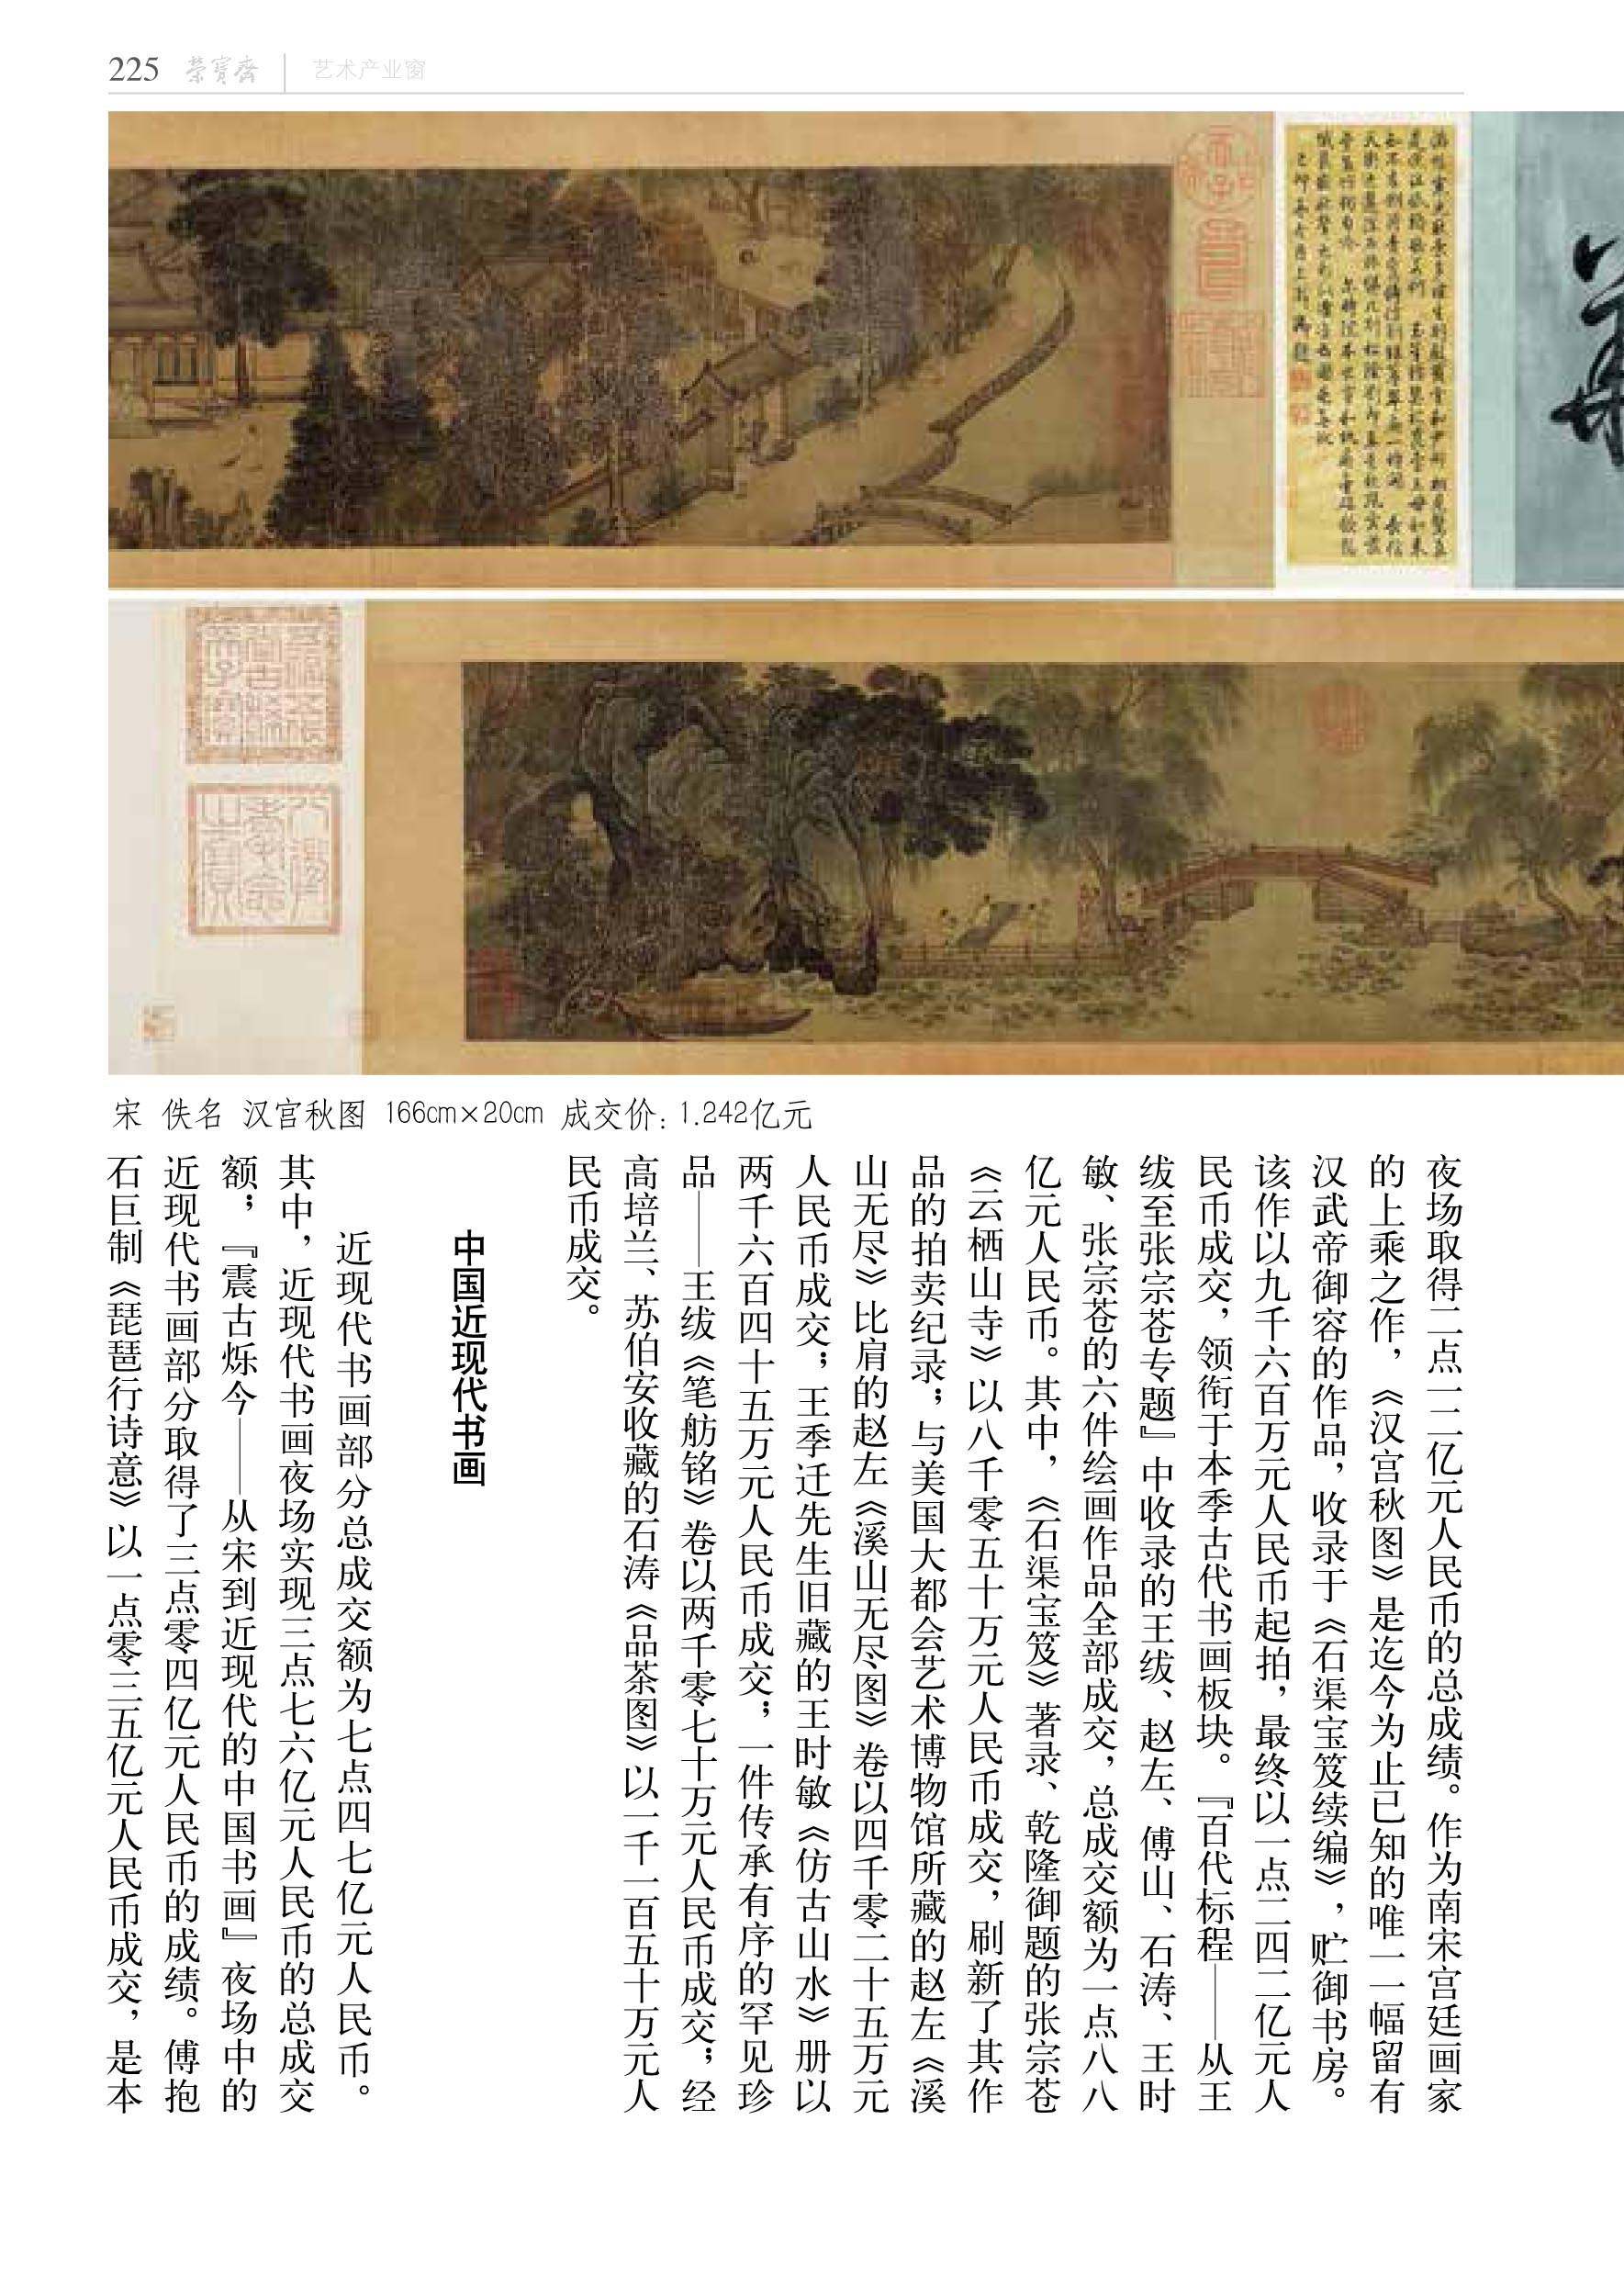 225 荣宝斋 艺术产业窗
宋 佚名 汉宫秋图 166cm×20cm 成交价：1.242亿元
夜场取得二点一二亿元人民币的总成绩。作为南宋宫廷画家
的上乘之作，《汉宫秋图》是迄今为止已知的唯一一幅留有
汉武帝御容的作品，收录于《石渠宝笈续编》，贮御书房。
该作以九千六百万元人民币起拍，最终以一点二四二亿元人
民币成交，领衔于本季古代书画板块。『百代标程——从王
绂至张宗苍专题』中收录的王绂、赵左、傅山、石涛、王时
敏、张宗苍的六件绘画作品全部成交，总成交额为一点八八
亿元人民币。其中，《石渠宝笈》著录、乾隆御题的张宗苍
《云栖山寺》以八千零五十万元人民币成交，刷新了其作
品的拍卖纪录；与美国大都会艺术博物馆所藏的赵左《溪
山无尽》比肩的赵左《溪山无尽图》卷以四千零二十五万元
人民币成交；王季迁先生旧藏的王时敏《仿古山水》册以
两千六百四十五万元人民币成交；一件传承有序的罕见珍
品——王绂《笔舫铭》卷以两千零七十万元人民币成交；经
高培兰、苏伯安收藏的石涛《品茶图》以一千一百五十万元人
民币成交。
中国近现代书画
近现代书画部分总成交额为七点四七亿元人民币。
其中，近现代书画夜场实现三点七六亿元人民币的总成交
额；『震古烁今——从宋到近现代的中国书画』夜场中的
近现代书画部分取得了三点零四亿元人民币的成绩。傅抱
石巨制《琵琶行诗意》以一点零三五亿元人民币成交，是本